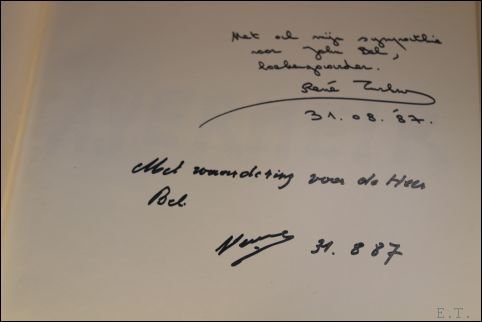 Met ook mijn sympathie
voor John Bel,
boekengoeroe.
René
31.08.'87.
Met waardering voor de Heer
Bel.
31.8 87
E.T.